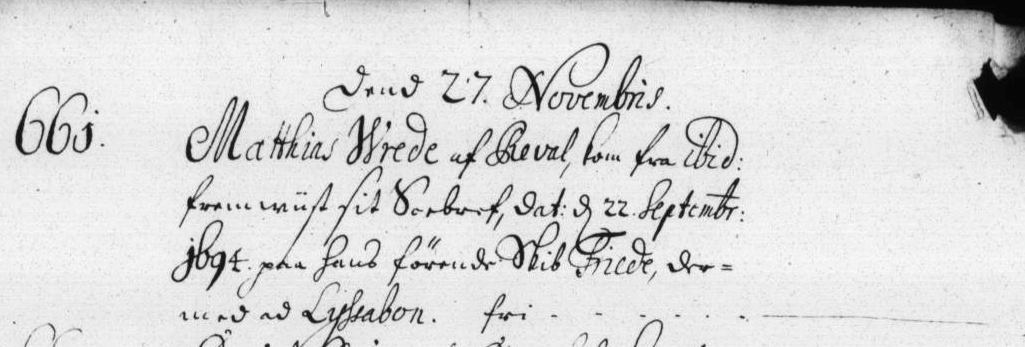 Dend 27. Novembris.
661. Matthias Wrede af Reval, kom fra ibid:
fremwiist sit Söebref, dat: d 22. Septembr:
1694. paa hans förende Skib Friede, der=
med ad Lyssabon. fri - - - - -